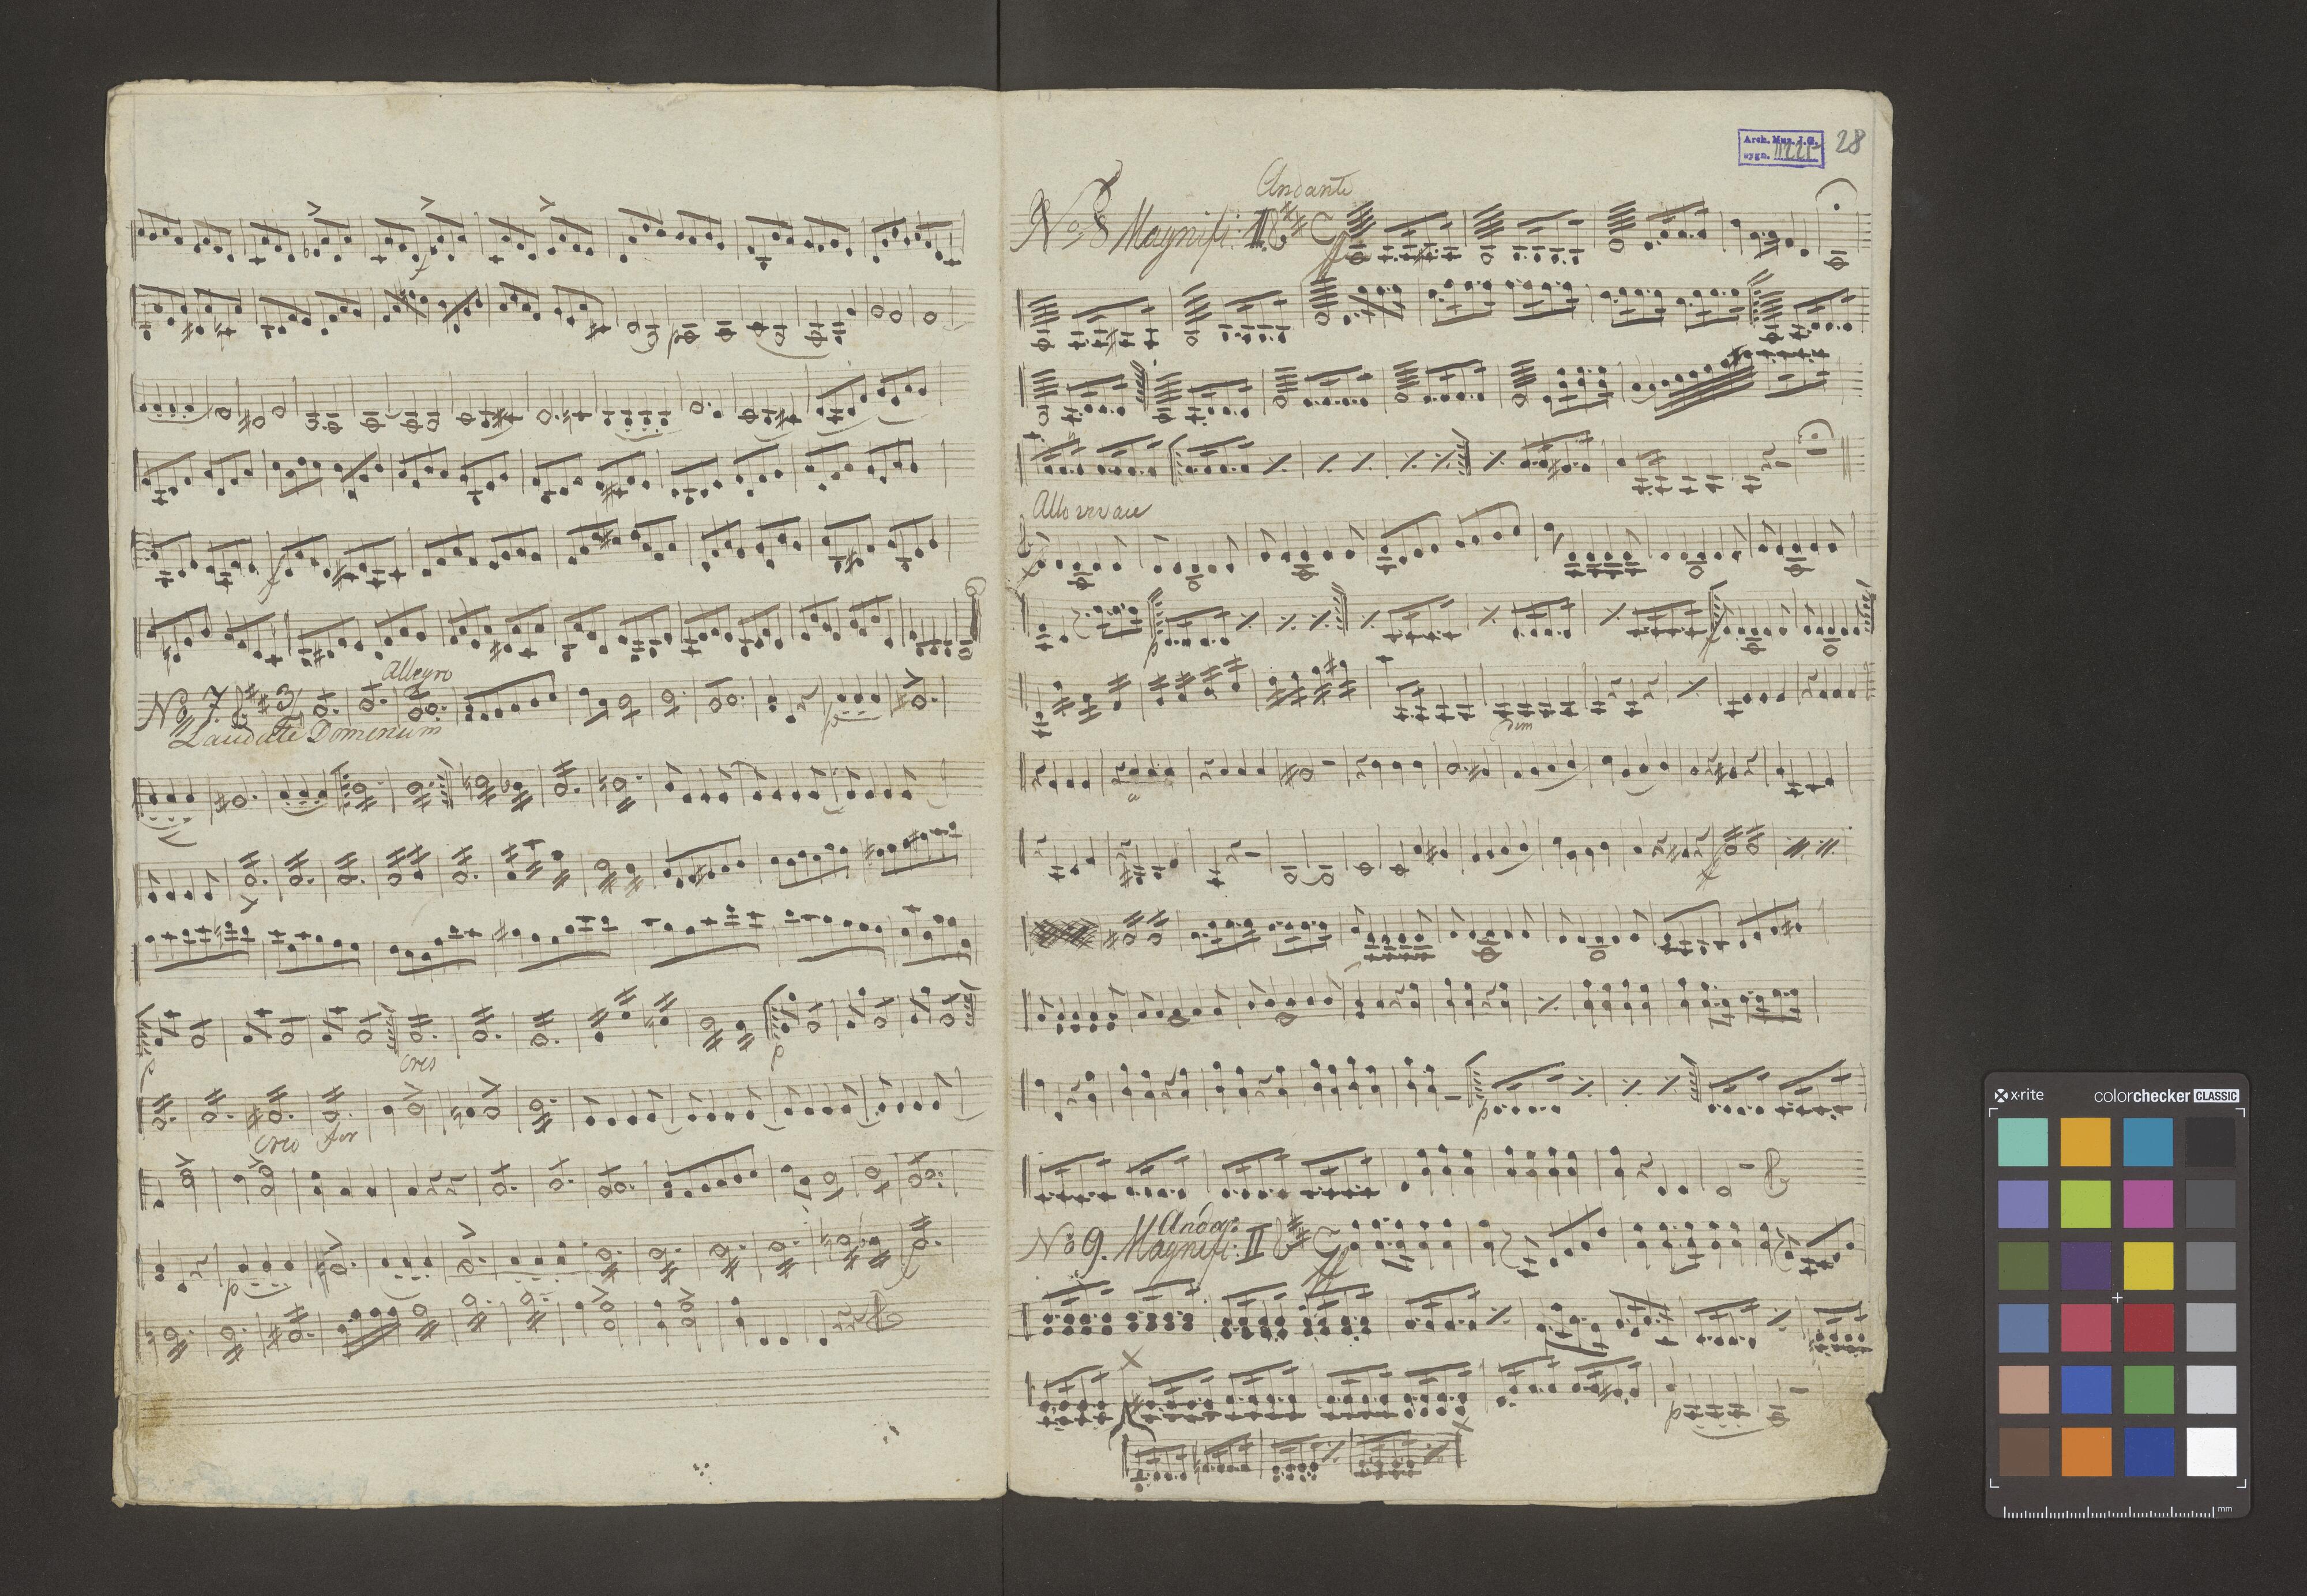 f
p
f
No 7. Allegro 3/4
Laudate Dominum
p
p
cres
p
cres for
p
f
Arch. Mus. J. G.
sygn.
28
Andante
No 8 Magnifi: II. C
ff
Allo vivace
f
p
f
dim
f
p
Andar
No 9. Magnifi: II C
ff
p
x-rite
colorchecker CLASSIC
mm